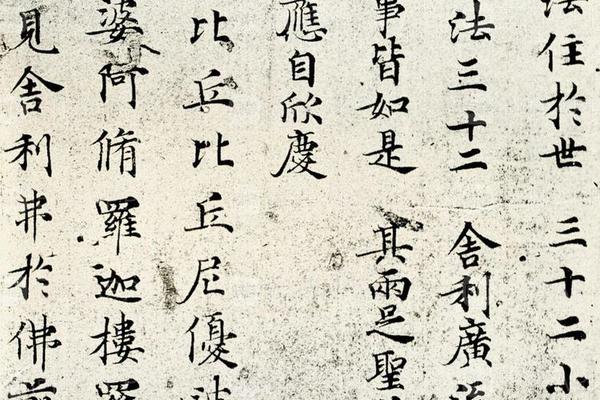 法住於世 三十二小
法三十二 舍利廣流
事皆如是 其兩足聖
應自欣慶
比丘比丘尼優婆
婆阿脩羅迦樓羅
見舍利弗於佛前